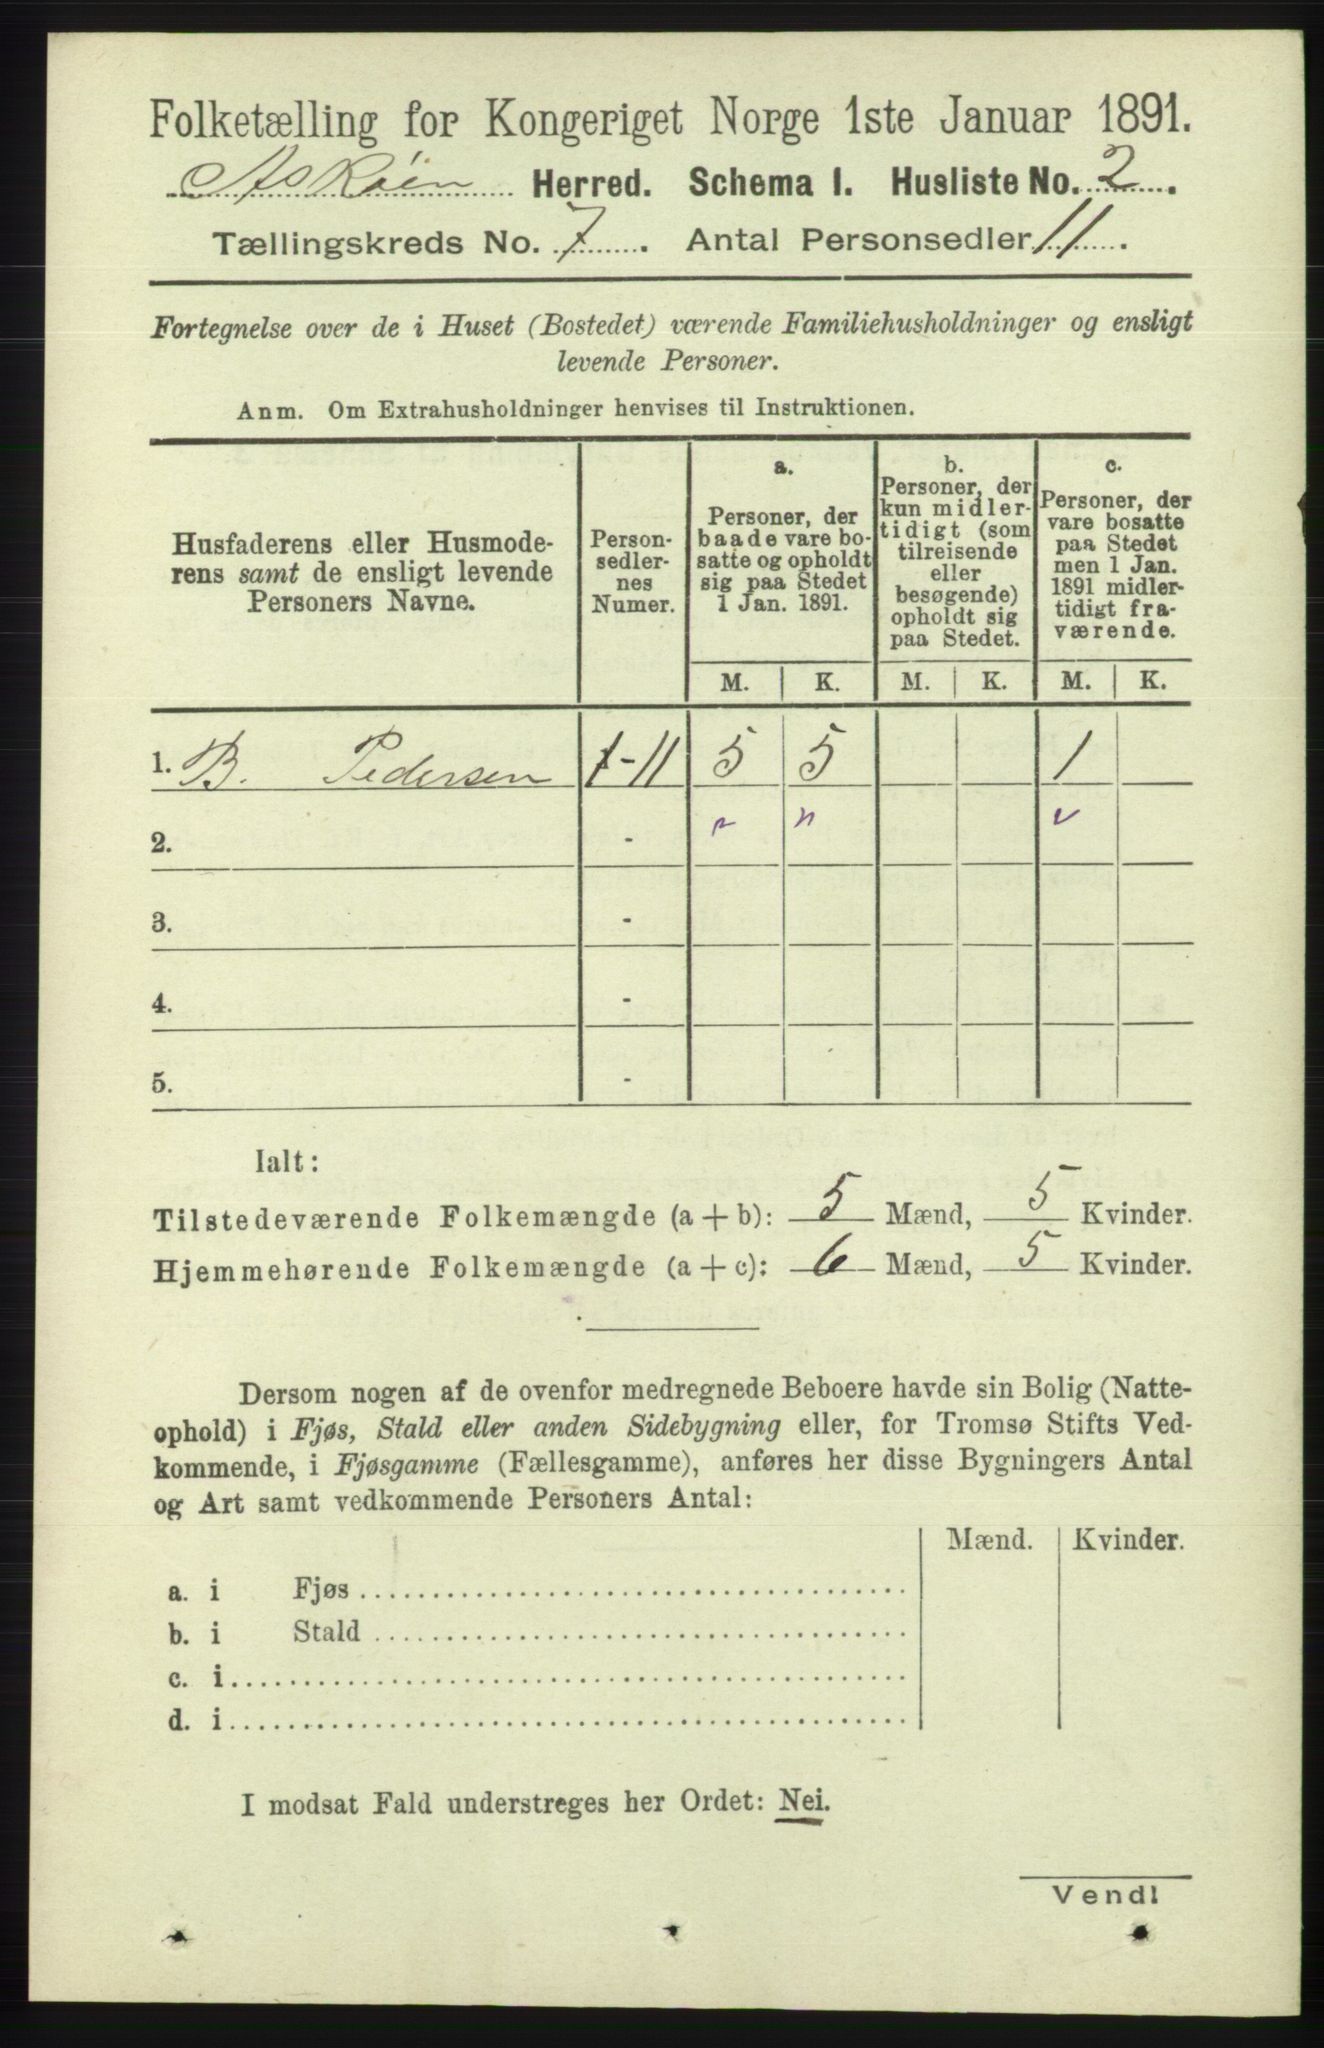 Folketælling for Kongeriget Norge 1ste Januar 1891.
Askøen Herred. Schema I. Husliste No. 2.
Tællingskreds No. 7. Antal Personsedler 11.
Fortegnelse over de i Huset (Bostedet) værende Familiehusholdninger og ensligt
levende Personer.
Anm. Om Extrahusholdninger henvises til Instruktionen.
Husfaderens eller Husmode-
rens samt de ensligt levende
Personers Navne.
Person-
sedler-
nes
Numer.
a.
Personer, der
baade vare bo-
satte og opholdt
sig paa Stedet
1 Jan. 1891.
b.
Personer, der
kun midler-
tidigt (som
tilreisende
eller
besøgende)
opholdt sig
paa Stedet.
c.
Personer, der
vare bosatte
paa Stedet
men 1 Jan.
1891 midler-
tidigt fra-
værende.
M. K. M. K. M. K.
1. B. Pedersen 1-11 5 5 1
2. -
3. -
4. -
5. -
Ialt:
Tilstedeværende Folkemængde (a+b): 5 Mænd, 5 Kvinder.
Hjemmehørende Folkemængde (a+c): 6 Mænd, 5 Kvinder.
Dersom nogen af de ovenfor medregnede Beboere havde sin Bolig (Natte-
ophold) i Fjøs, Stald eller anden Sidebygning eller, for Tromsø Stifts Ved-
kommende, i Fjøsgamme (Fællesgamme), anføres her disse Bygningers Antal
og Art samt vedkommende Personers Antal:
Mænd. Kvinder.
a. i Fjøs
b. i Stald
c. i
d. i
I modsat Fald understreges her Ordet: Nei.
Vend!